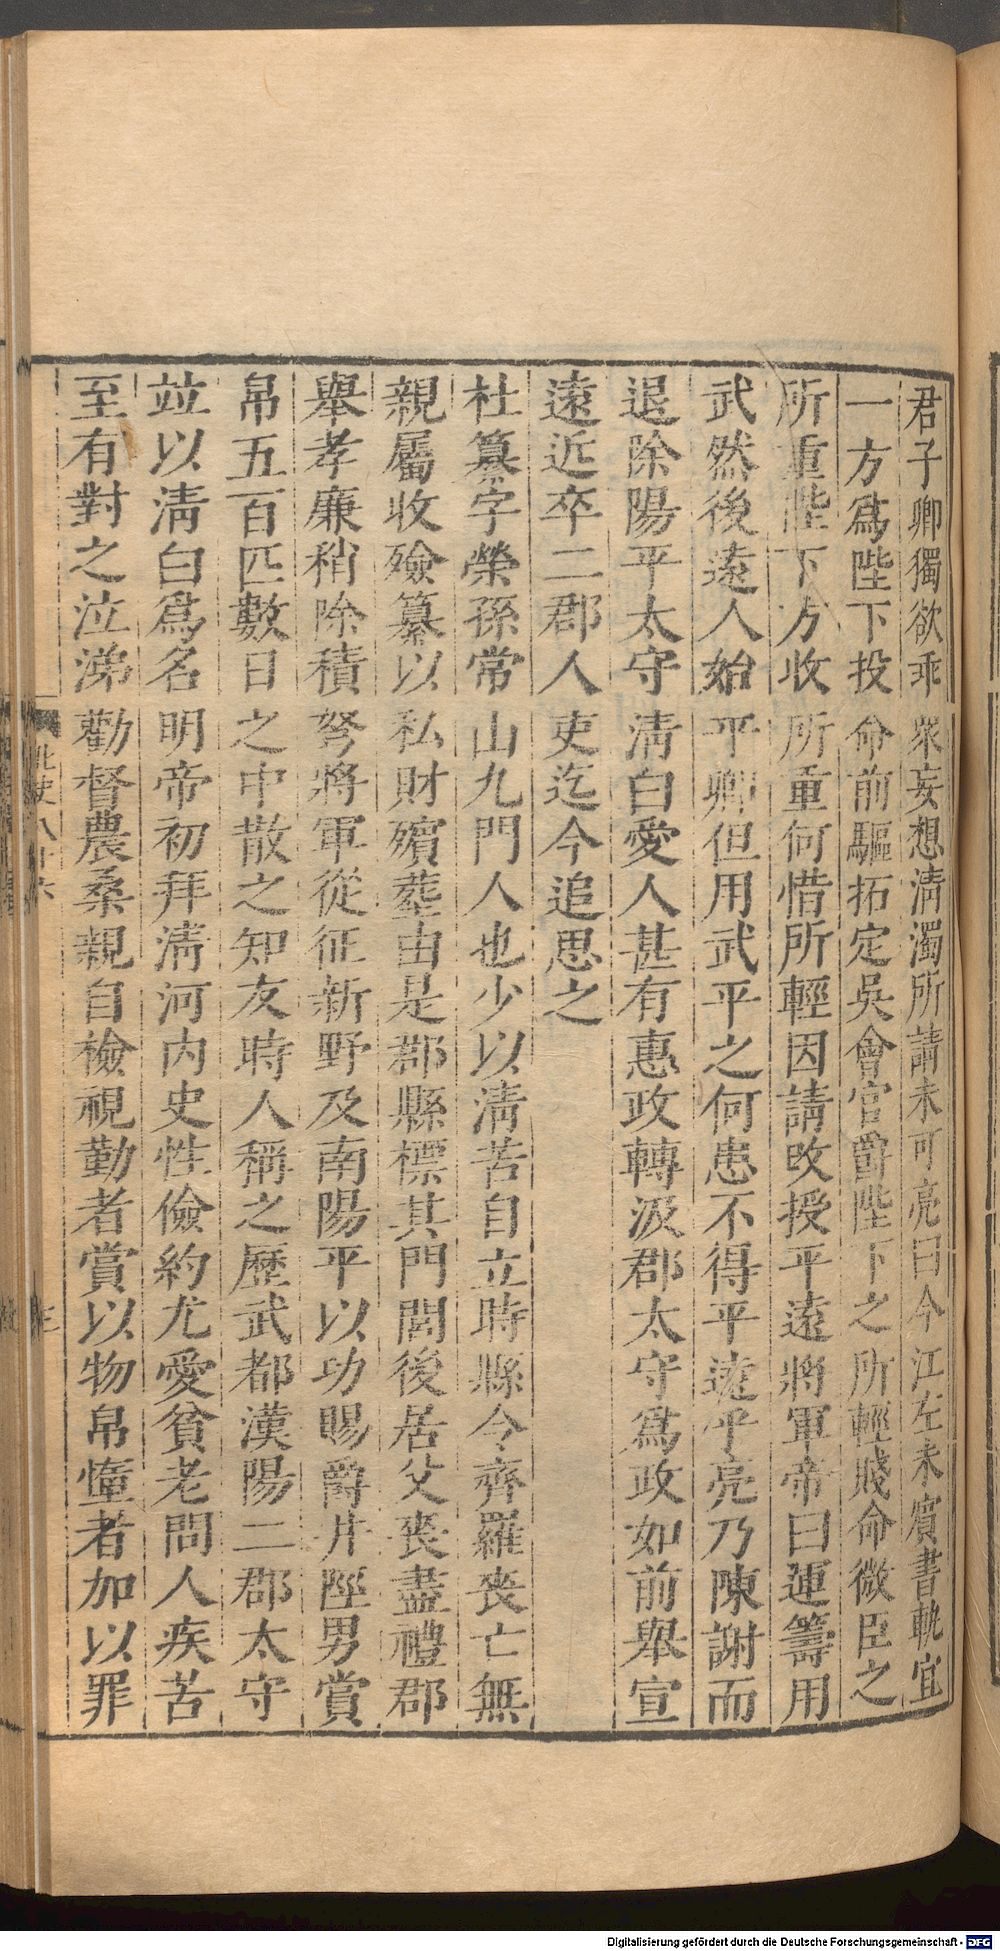 君子卿獨欲乖衆妄想淸濁所請未可亮曰今江左未賓書軌宜
一方爲陛下投命前驅拓定吳會官爵陛下之所輕賤命微臣之
所重陛下方收所重何惜所輕因請改授平遠將軍帝曰運籌用
武然後遠人始平卿但用武平之何患不得平遠乎亮乃陳謝而
退除陽平太守淸白愛人甚有惠政轉汲郡太守爲政如前舉宣
遠近卒二郡人吏迄今追思之
杜纂字榮孫常山九門人也少以淸苦自立時縣令齊羅喪亡無
親屬收殮纂以私財殯葬由是郡縣標其門閭後居父喪盡禮郡
舉孝廉稍除積弩將軍從征新野及南陽平以功賜爵井陘男賞
帛五百匹數日之中散之知友時人稱之歷武都漢陽二郡太守
竝以淸白爲名明帝初拜淸河內史性儉約尤愛貧老問人疾苦
至有對之泣涕勸督農桑親自檢視勤者賞以物帛惰者加以罪
北史八十六
Digitalisierung gefördert durch die Deutsche Forschungsgemeinschaft - DFG